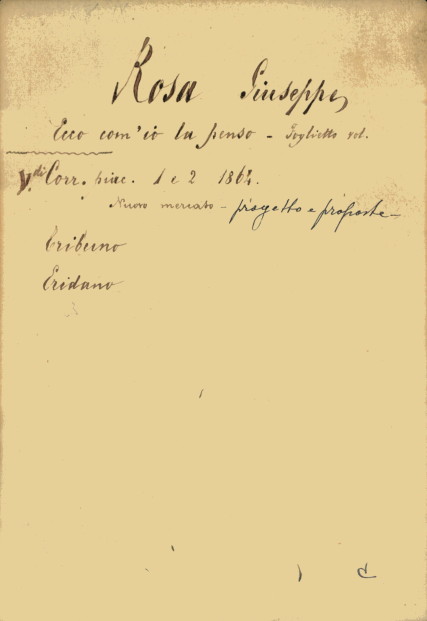 Rosa Giuseppe
Ecco com'io la penso - Foglietto vol.
V.di Corr. piac. 1 e 2 1864.
Nuovo mercato - progetto e proposte -
Tribuno
Eridano